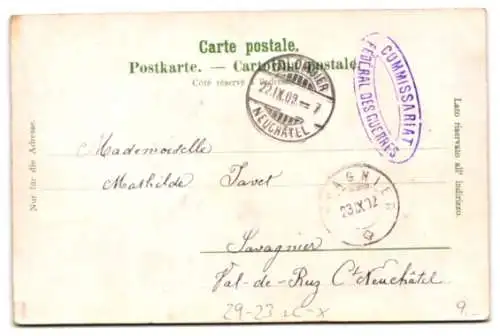 Carte postale.
Postkarte. — Cartolina postale
Côté réservé à
22.IX.09.–7
NEUCHÂTEL
COMMISSARIAT
FÉDÉRAL DES GUERRES
Nur für die Adresse.
Lato riservato all' indirizzo.
Mademoiselle
Mathilde Javet
23.IX.
Savagnier
Val-de-Ruz Ct. Neuchâtel
29-23
9.–